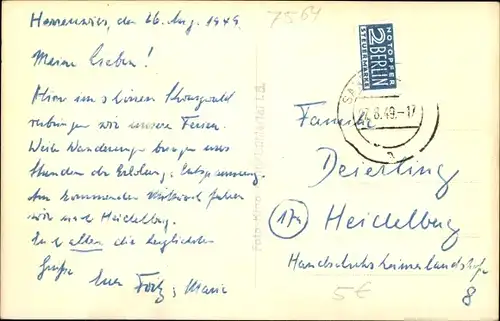 Herrenwies, den 26. Aug. 1949
7564
Meine Lieben!
Hier im schönen Schwarzwald
verbringen wir unsere Ferien.
Weite Wanderungen bringen uns
Stunden der Erholung, Entspannung.
Am kommenden Mittwoch fahren
wir nach Heidelberg.
Euch allen die herzlichsten
Grüße Eure Fritz, Marie
NOTOPFER
2 BERLIN
STEUERMARKE
.8.49.-17
a
Familie
Deierling
(17a) Heidelberg
Handschuhsheimerlandstraße
8
5€